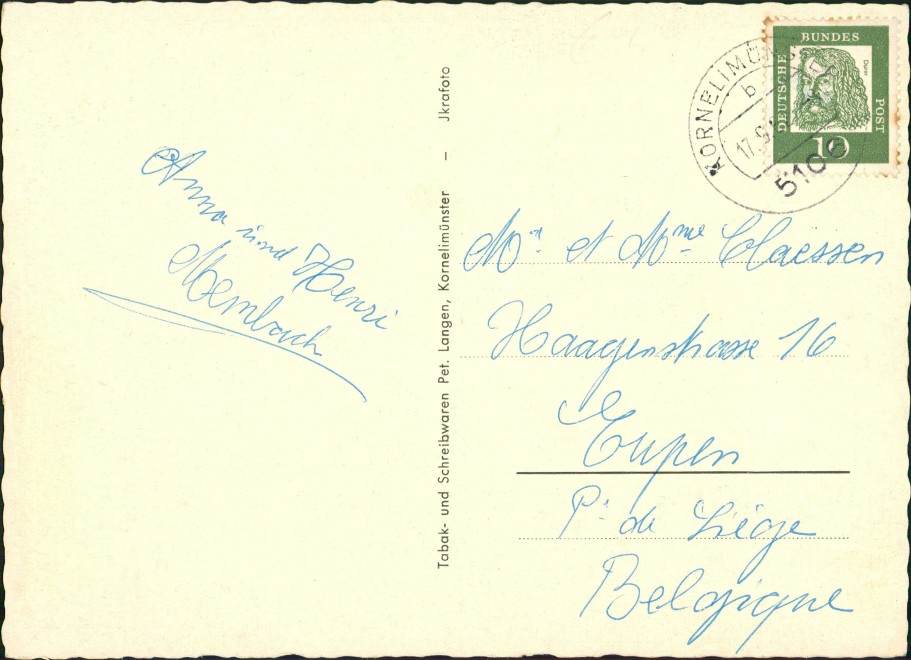 Anna und Henri
Membach
Tabak- und Schreibwaren Pet. Langen, Kornelimünster – Jkrafoto
DEUTSCHE BUNDES POST
Dürer
10
KORNELIMÜNSTER
b
17.9.
5106
Mr et Mme Claessen
Haagenstrasse 16
Eupen
P. de Liége
Belgique